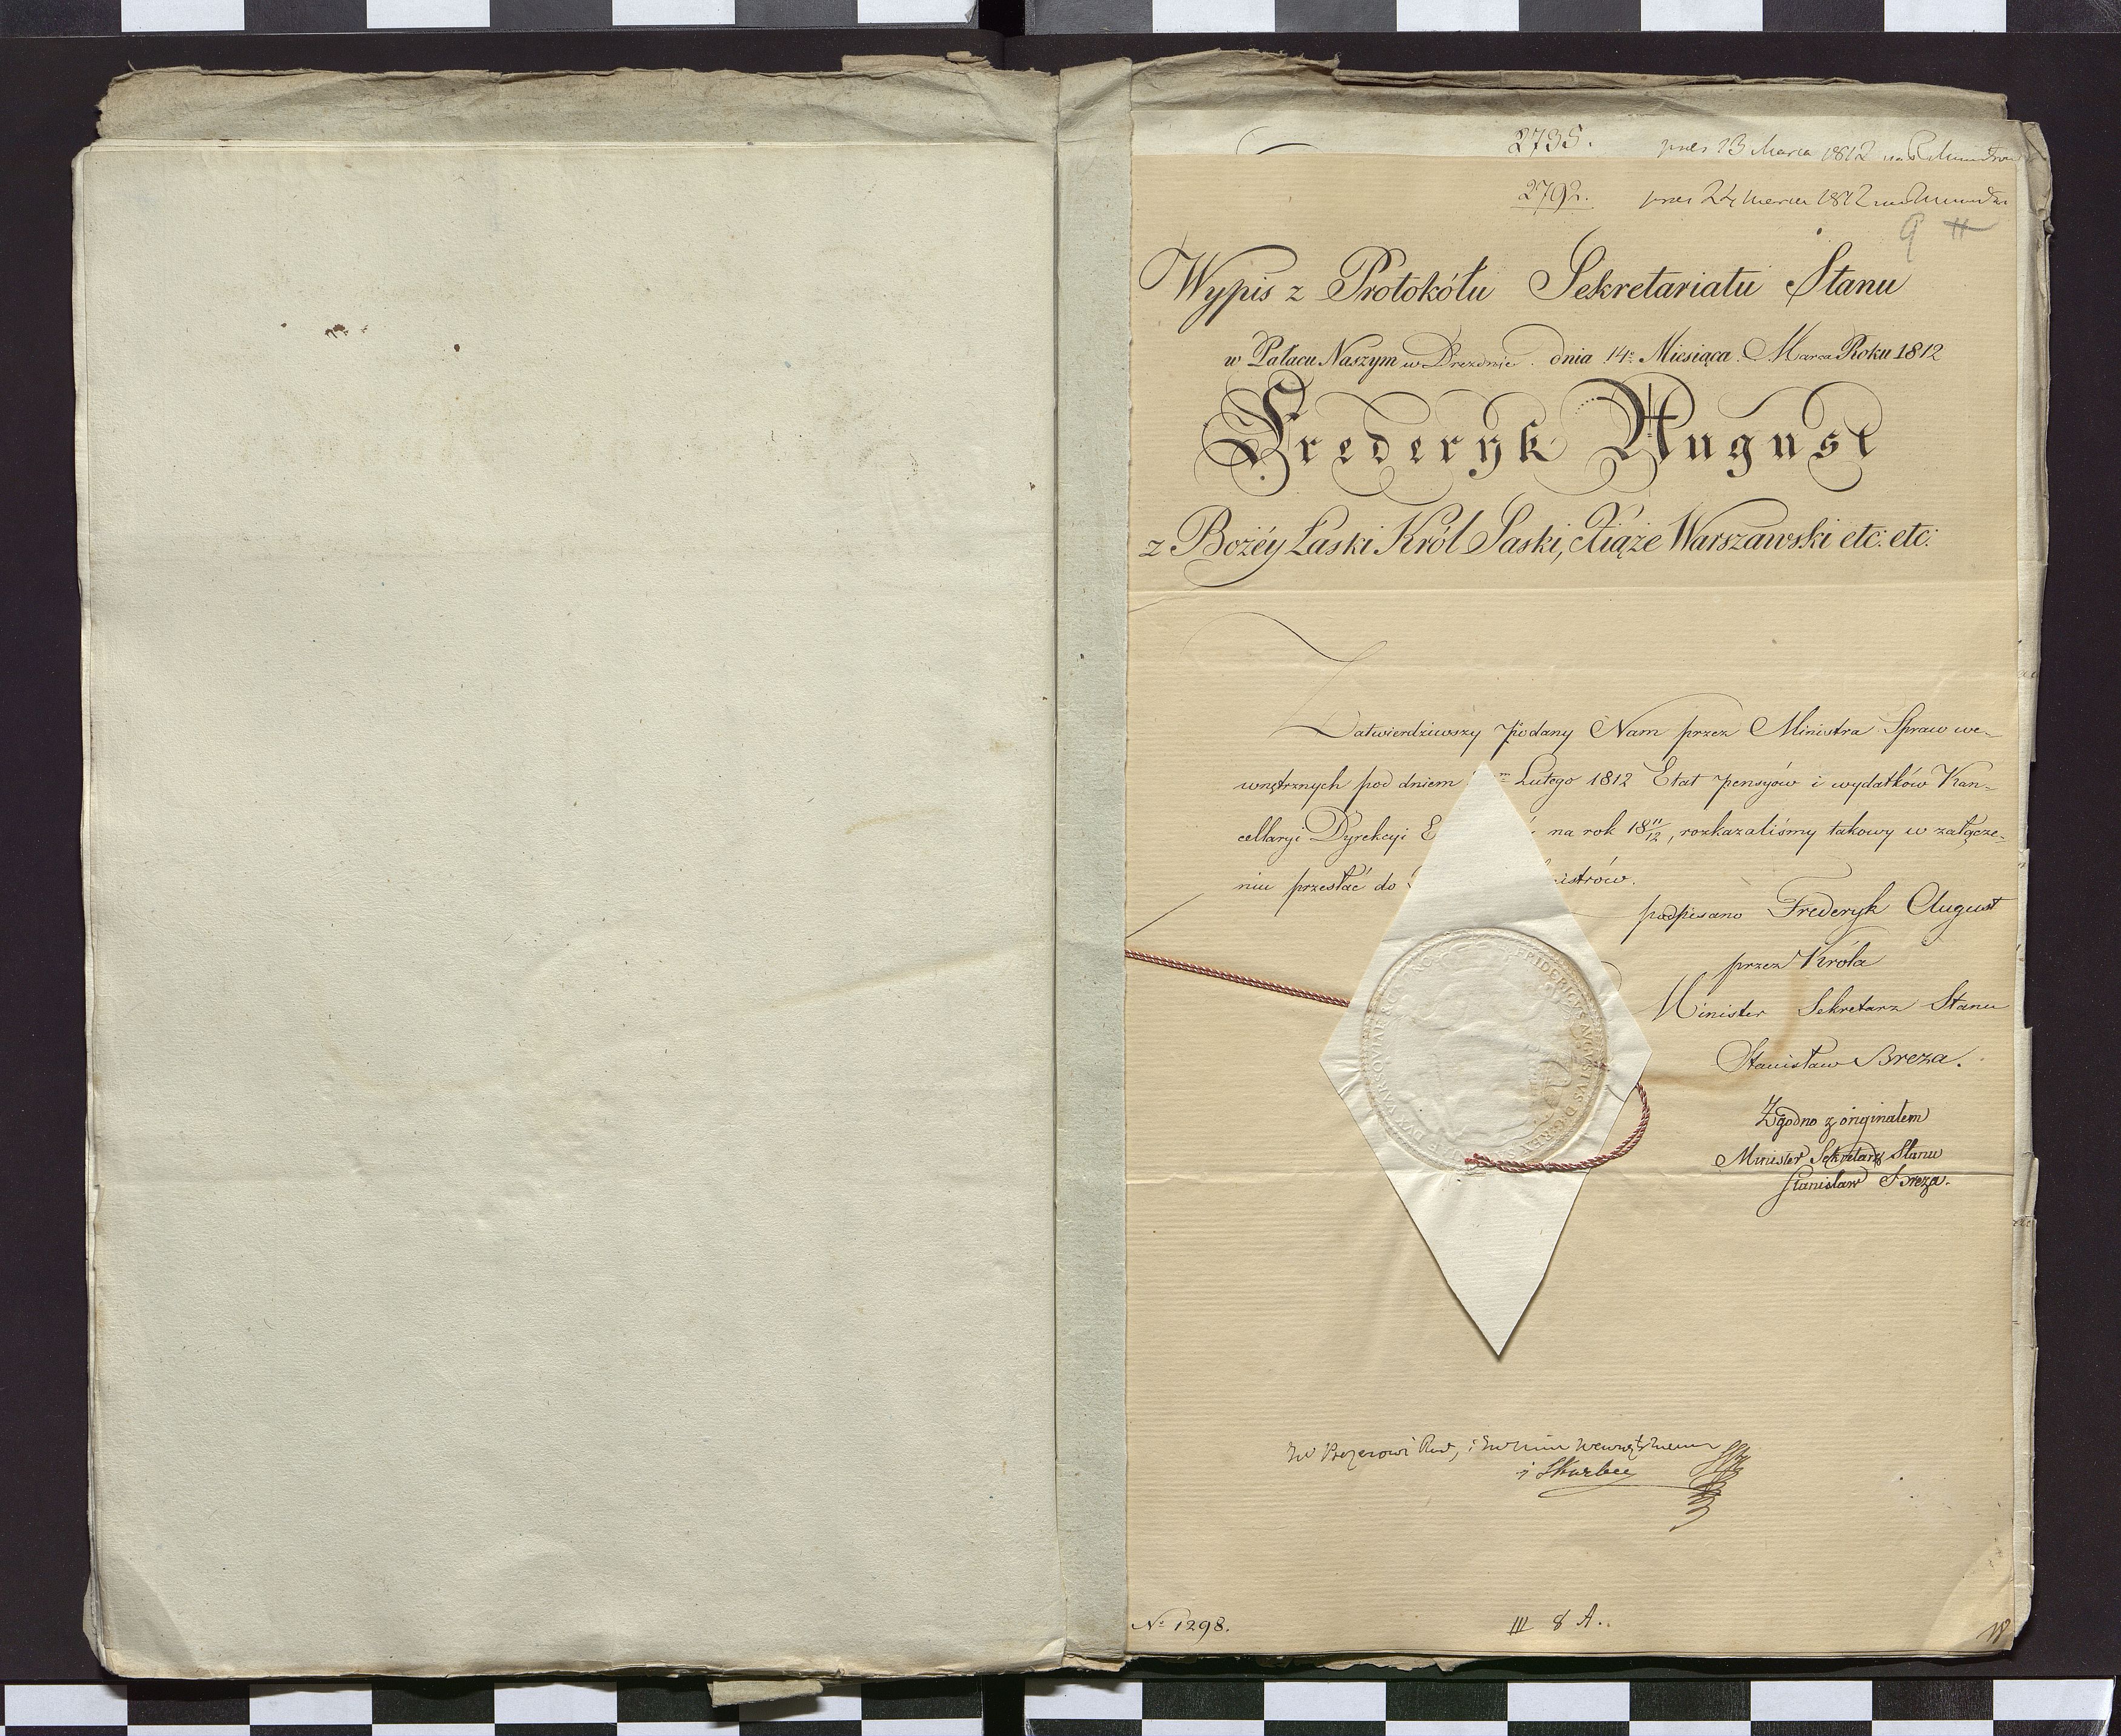 2735. pres 23 Marca 1812 na R Ministrów
2792. pres 24 Marca 1812
9
Wypis z Protokółu Sekretariatu Stanu
w Pałacu Naszym w Dreznie. dnia 14: Miesiąca Marca Roku 1812
Frederyk August
z Bożéy Łaski Król Saski, Xiąże Warszawski etc: etc:
Zatwierdziwszy podany Nam przez Ministra Spraw we-
wnętrznych pod dniem Lutego 1812 Etat pensyów i wydatków Kan-
cellaryi Dyrekcyi na rok 18 11/12, rozkazaliśmy takowy w załącze-
niu przesłać do istrów.
podpisano Frederyk August
przez Króla
Minister Sekretarz Stanu
Stanisław Breza.
FRIDERICUS AUGUSTUS D.G. REX DUX VARSOVIAE
Zgodno z originałem
Minister Sekretarz Stanu
Stanisław Breza.
i Skarbu
No 1298. III 8 A.
18